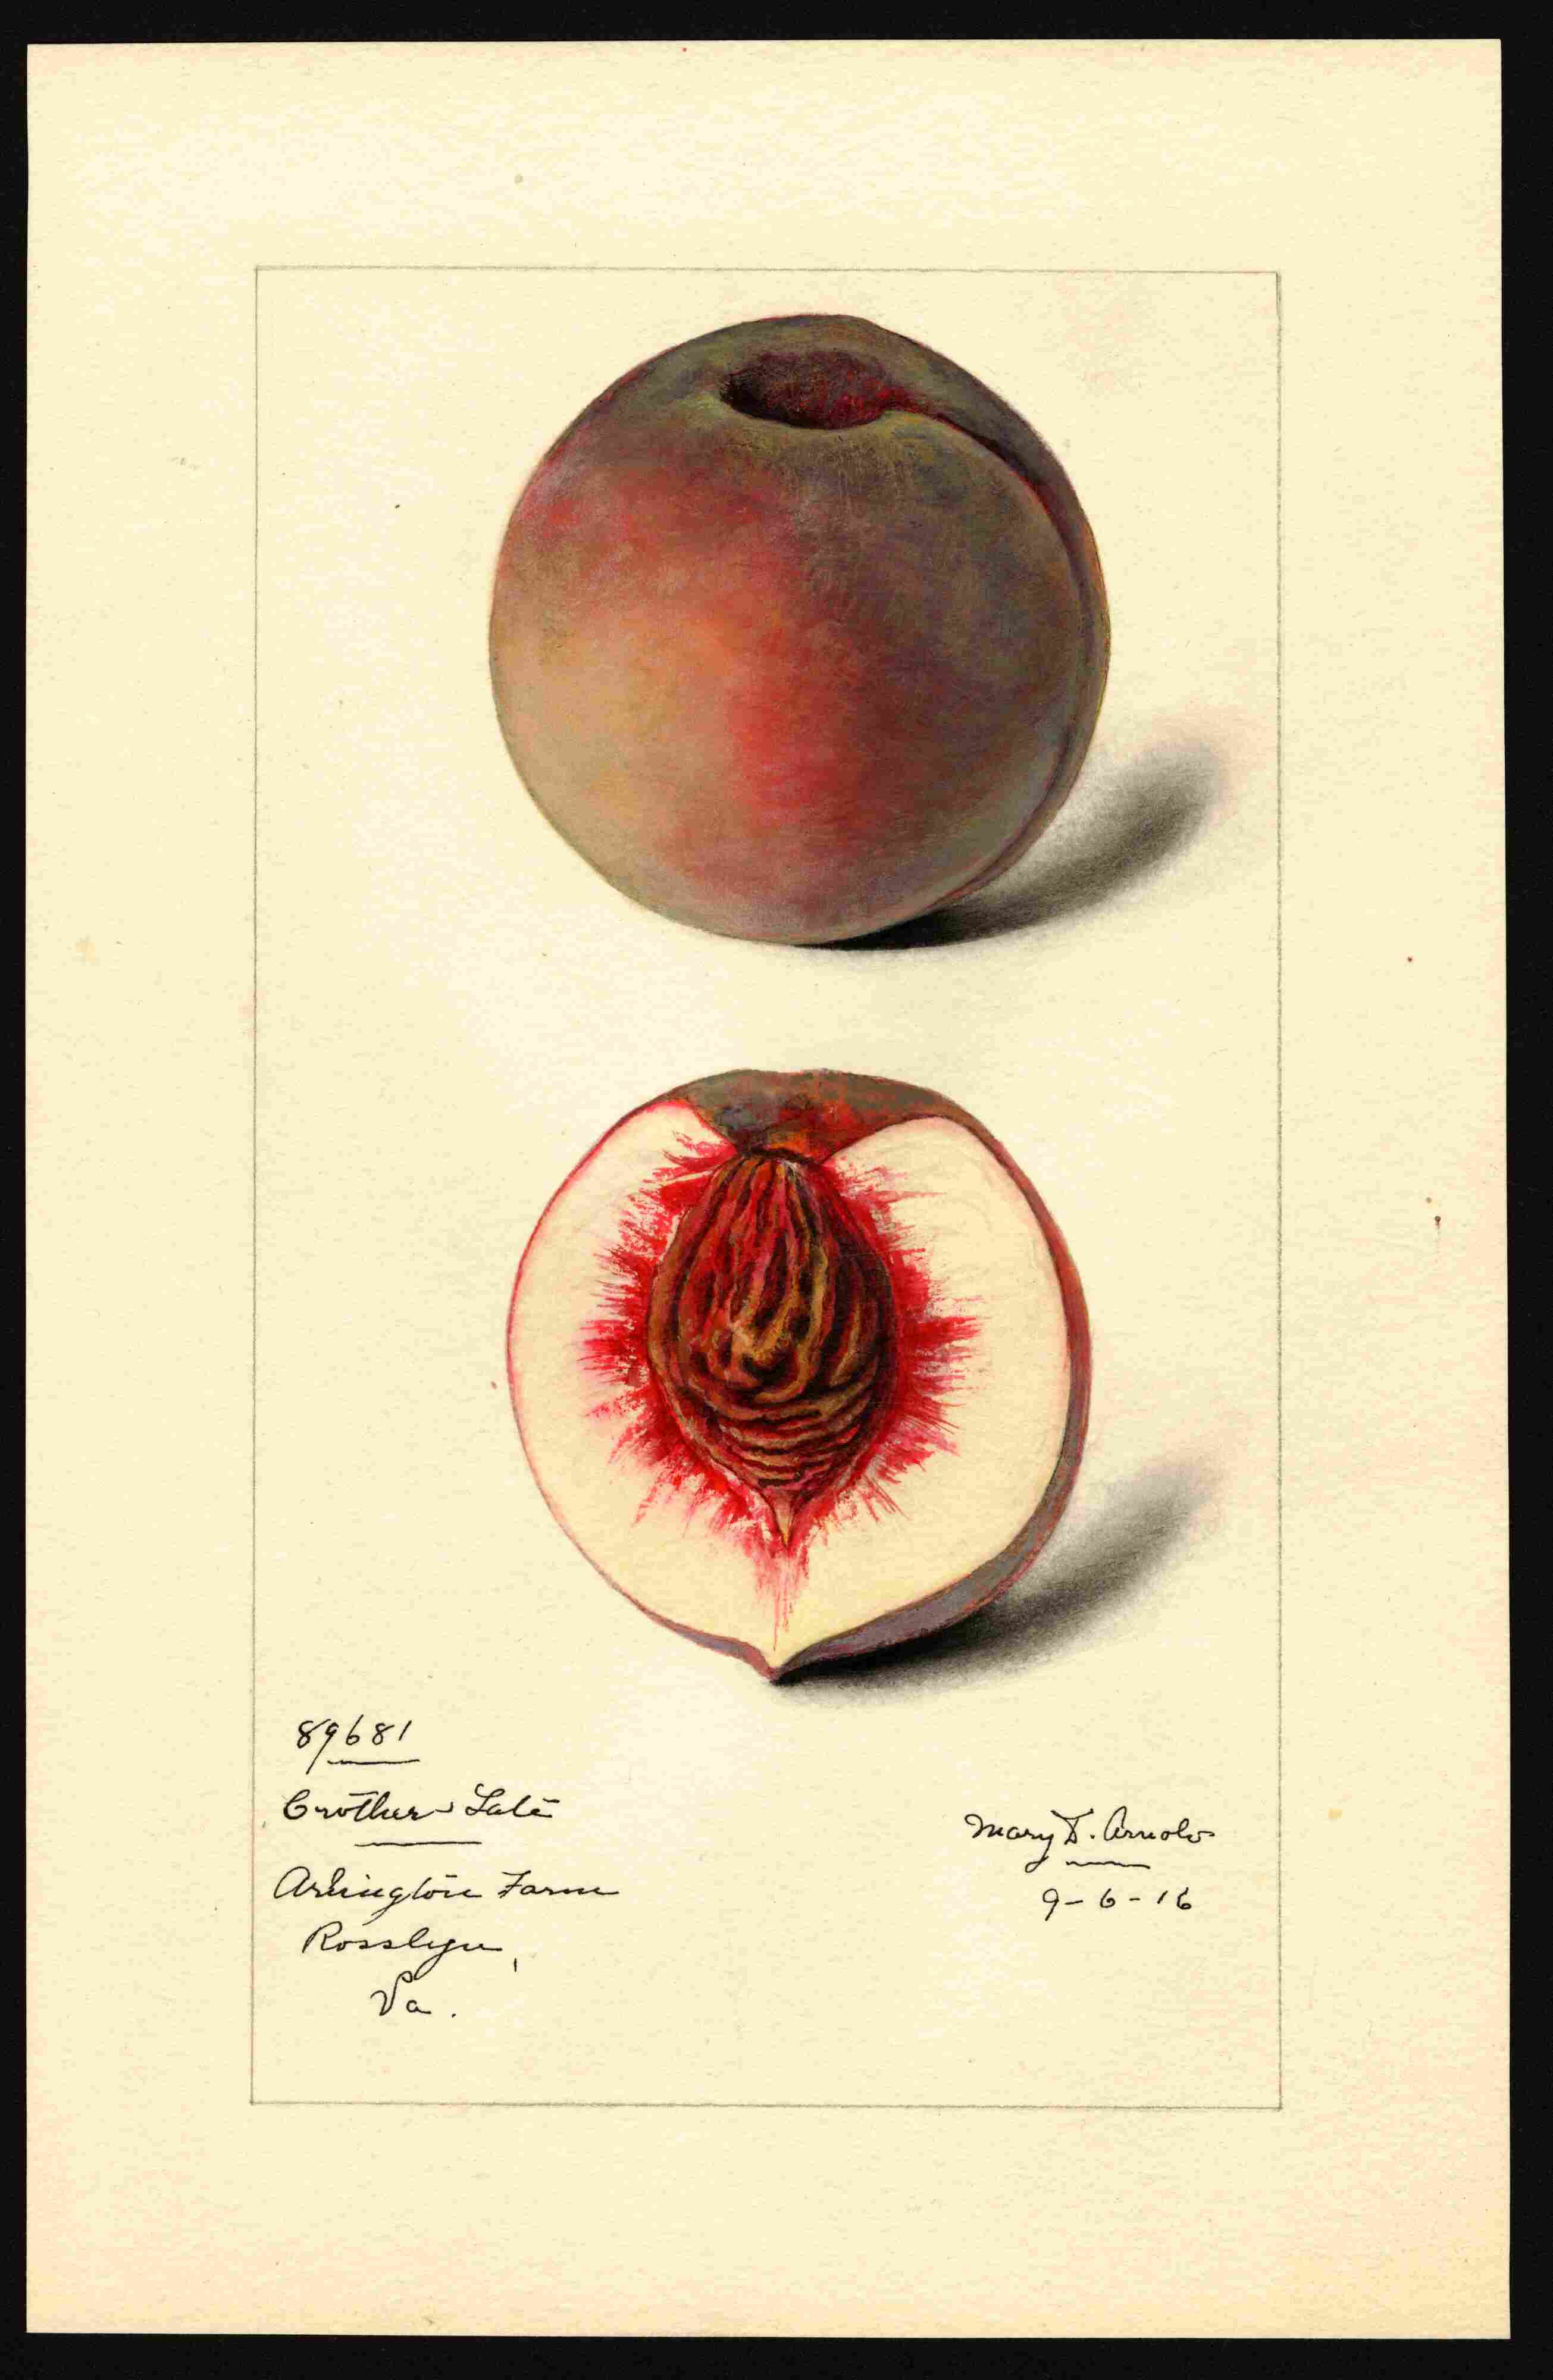 89681
Crothers Late
Arlington Farm
Rosslyn,
Va.
Mary D. Arnold
9-6-16